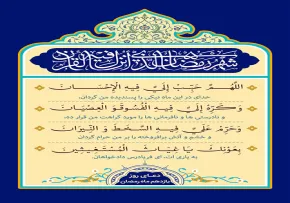 شهر رمضان الذی انزل فیه القرآن
اللهم حبب الی فیه الاحسان
خدای در این ماه نیکی را پسندیده من گردان،
و کره الی فیه الفسوق و العصیان
و نادرستی ها و نافرمانی ها را مورد کراهت من قرار ده،
و حرم علی فیه السخط و النیران
و خشم و آتش برافروخته را بر من حرام گردان
بعونک یا غیاث المستغیثین
به یاری ات، ای فریادرس دادخواهان.
دعای روز
یازدهم ماه رمضان